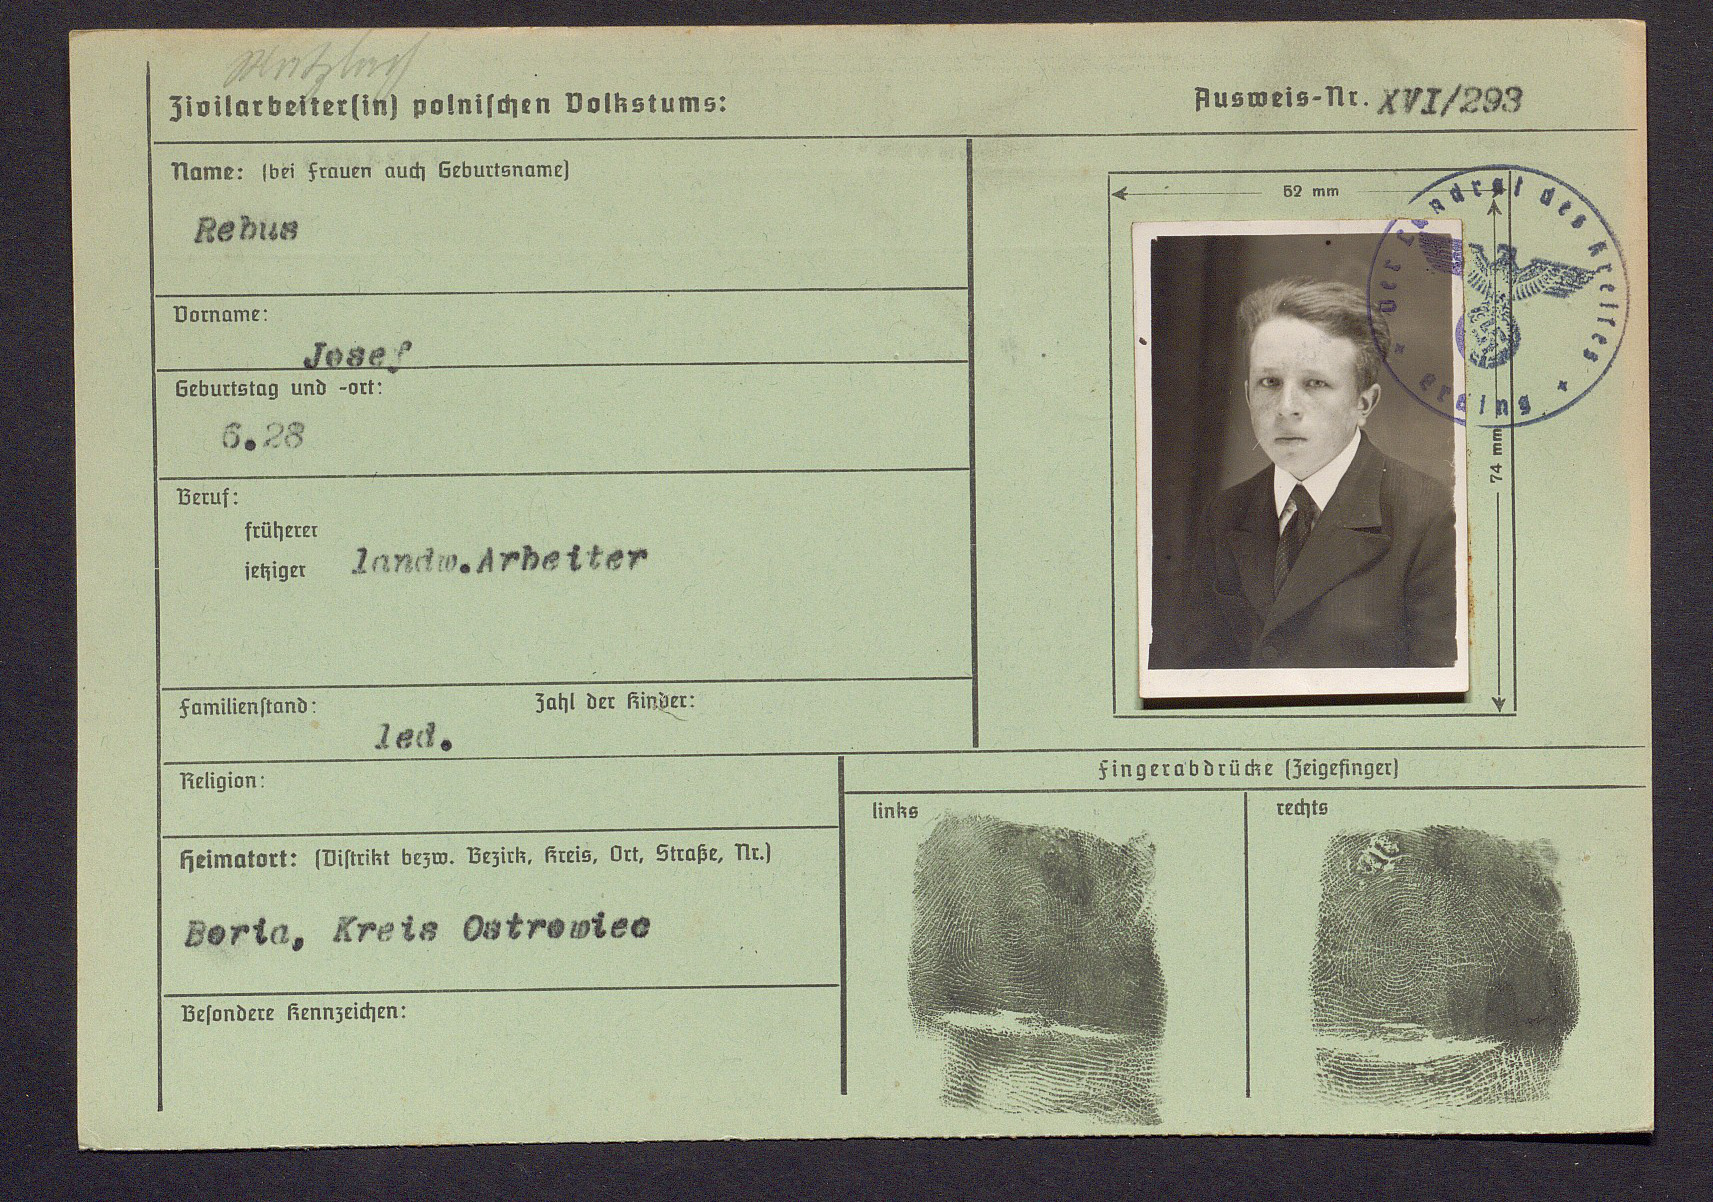 Zivilarbeiter(in) polnischen Volkstums:
Ausweis-Nr. XVI/293
Name: (bei Frauen auch Geburtsname)
Rebus
Vorname:
Josef
Geburtstag und -ort:
6.28
Beruf:
früherer
jetziger landw.Arbeiter
Familienstand: Zahl der Kinder:
led.
Religion:
Heimatort: (Distrikt bezw. Bezirk, Kreis, Ort, Straße, Nr.)
Boria, Kreis Ostrowiec
Besondere Kennzeichen:
52 mm
74 mm
Der Landrat des Kreises
Erding
Fingerabdrücke (Zeigefinger)
links
rechts